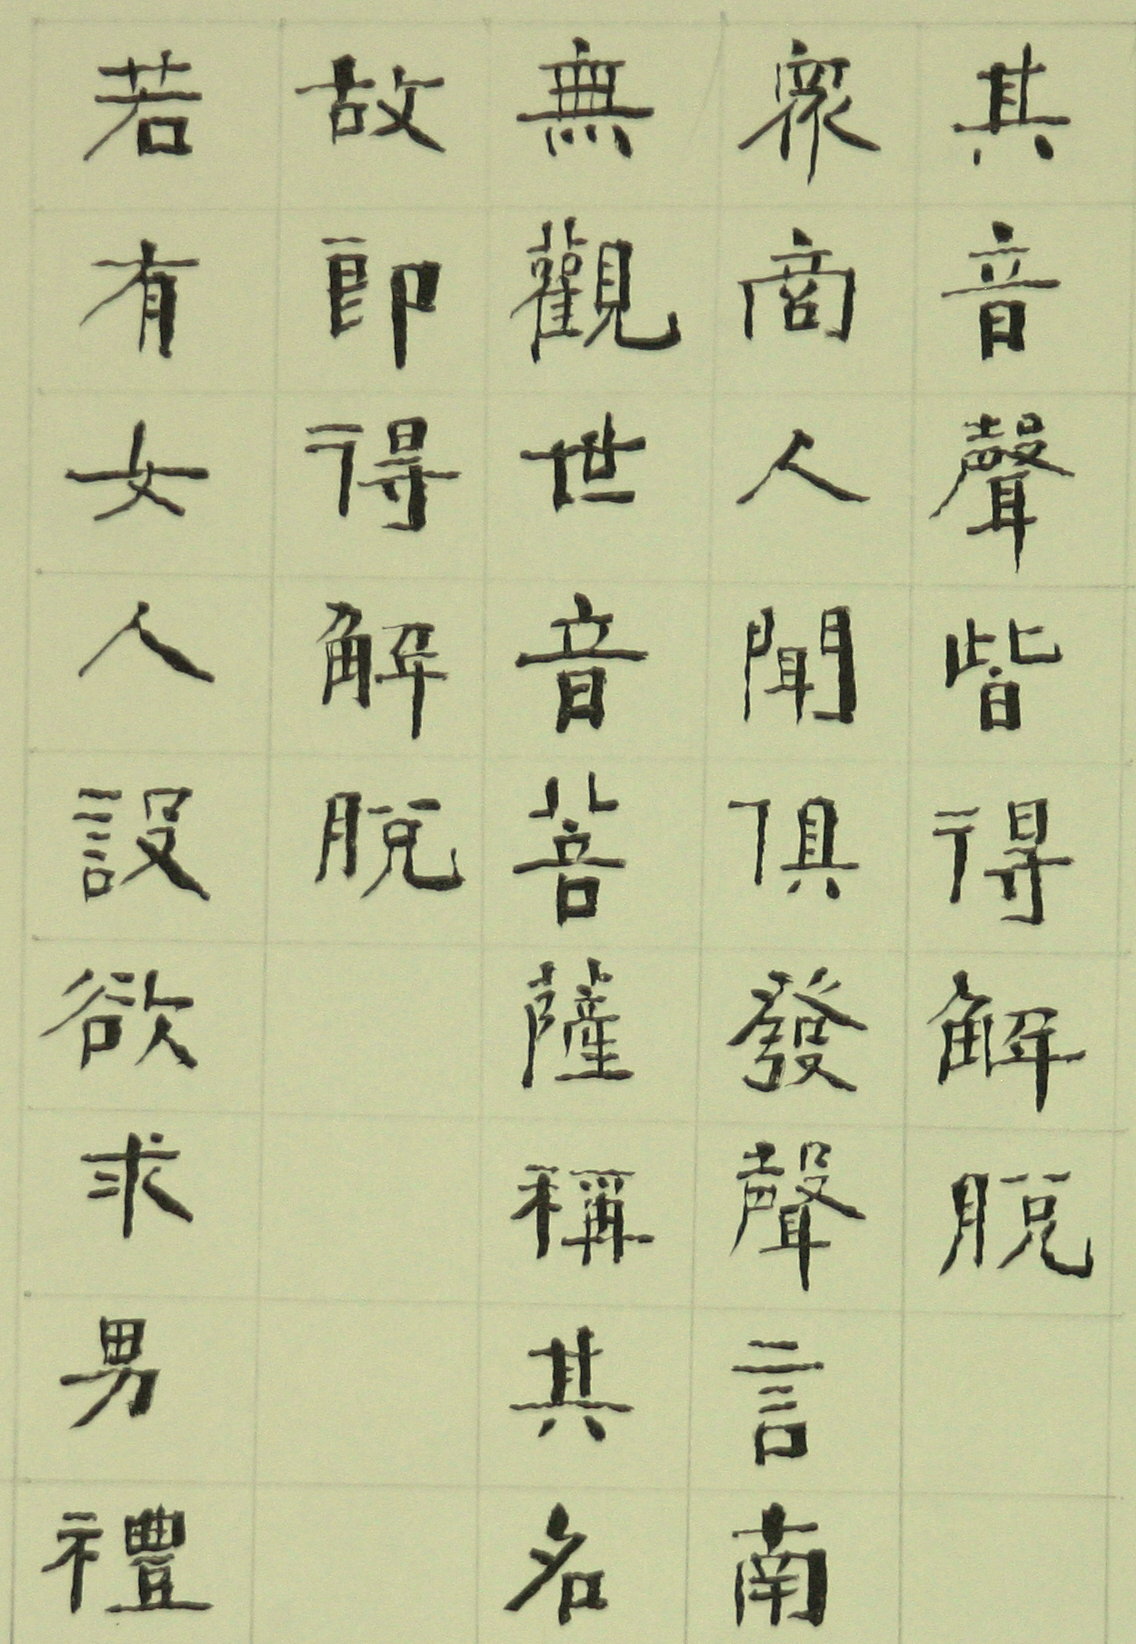 其音聲皆得解脫
衆商人聞俱發聲言南
無觀世音菩薩稱其名
故即得解脫
若有女人設欲求男禮